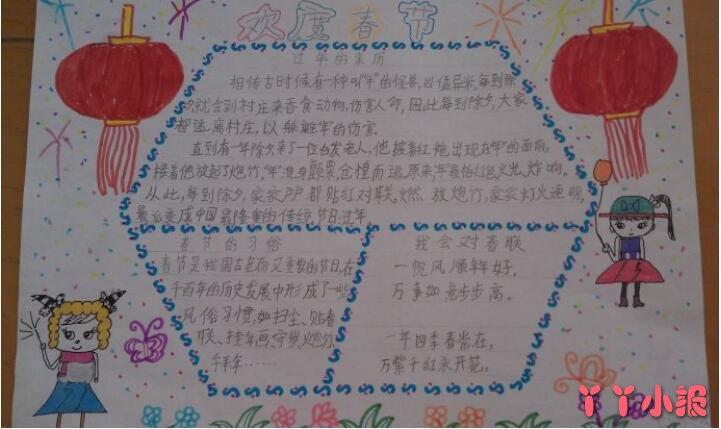 欢度春节
过年的来历
相传古时候有一种叫"年"的怪兽,凶猛异常,每到除
夕就会到村庄来吞食动物,伤害人命,因此每到除夕,大家
都逃离村庄,以躲避"年"的伤害
直到有一年除夕,来了一位白发老人,他披着红袍出现在"年"的面前,
接着他放起了炮竹,"年"浑身颤栗,仓惶而逃,原来"年"最怕红色、火光、炸响。
从此,每到除夕,家家户户都贴红对联,燃放炮竹,家家灯火通明,
最后变成中国最隆重的传统节日:过年。
春节的习俗
春节是我国古老而又重要的节日,在
千百年的历史发展中形成了一些
风俗习惯,如扫尘、贴春
联、挂年画,守岁、炮竹、
拜年……
我会对春联
一帆风顺年年好,
万事如意步步高。
一年四季春常在,
万紫千红永开花。
丫丫小报